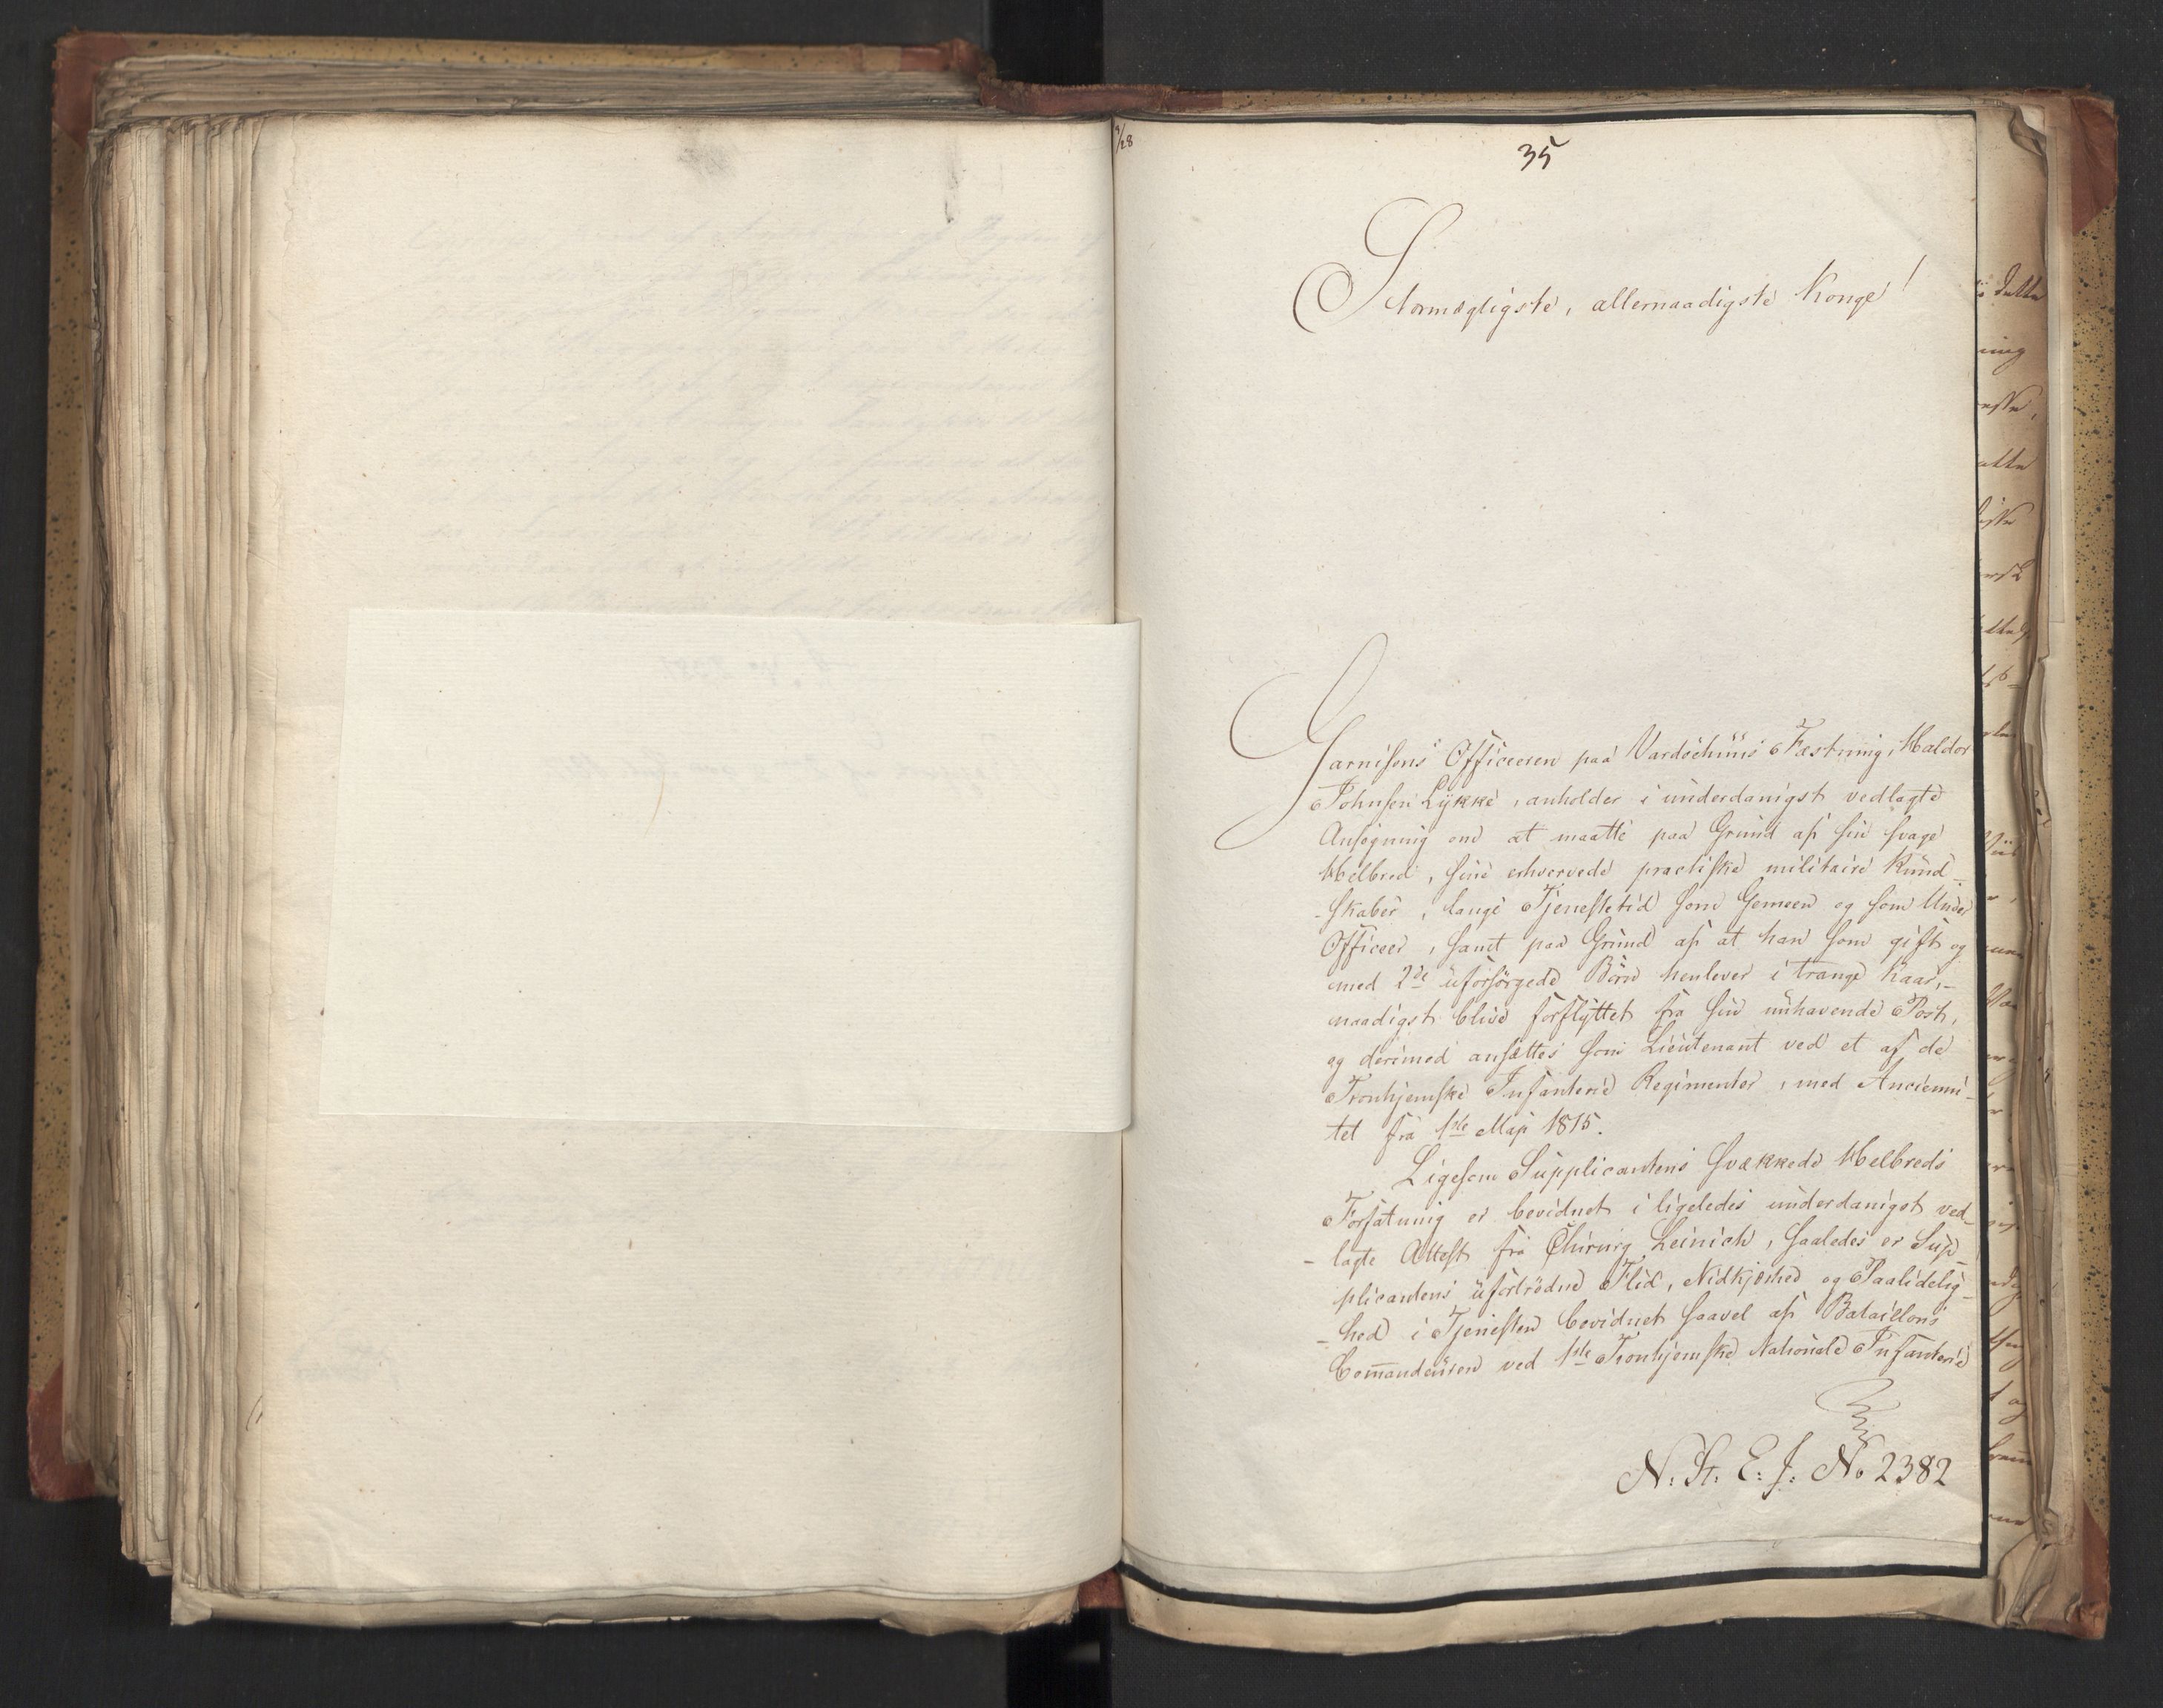 9/28
35
Stormægtigste, allernaadigste Konge!
Garnisons Officeren paa Vardøehuus Fæstning, Haldor
Johnsen Lykke, anholder i underdanigst vedlagte
Ansøgning om at maatte paa Grund af sin svage
Helbred, sine erhvervede practiske militaire Kund-
-skaber, lange Tjenestetid som Gemeen og som Under
Officeer, samt paa Grund af at han som gift og
med 2de uforsørgede Børn henlever i trange Kaar,-
naadigst blive forflyttet fra sin nuhavende Post,
og derimod ansættes som Lieutenant ved et af de
Tronhjemske Infanterie Regimenter, med Ancienni-
tet fra 1ste Maji 1815.
Ligesom Supplicantens svækkede Helbreds
Forfatning er bevidnet i ligeledes underdanigst ved-
-lagte Attest fra Chirurg Leinich, saaledes er Sup-
plicantens ufortrødne Flid, Nidkjærhed og Paalidelig-
-hed i Tjenesten bevidnet saavel af Bataillons
Com̅andeuren ved 1ste Tronhjemske Nationale Infanterie
N: St. E: J: No 2382